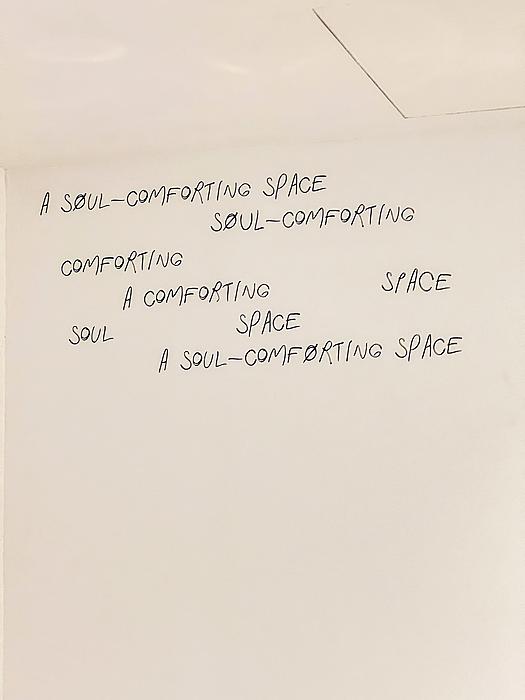 A SØUL-COMFORTING SPACE
SØUL-COMFORTING
COMFORTING
A COMFORTING SPACE
SOUL SPACE
A SOUL-COMFØRTING SPACE